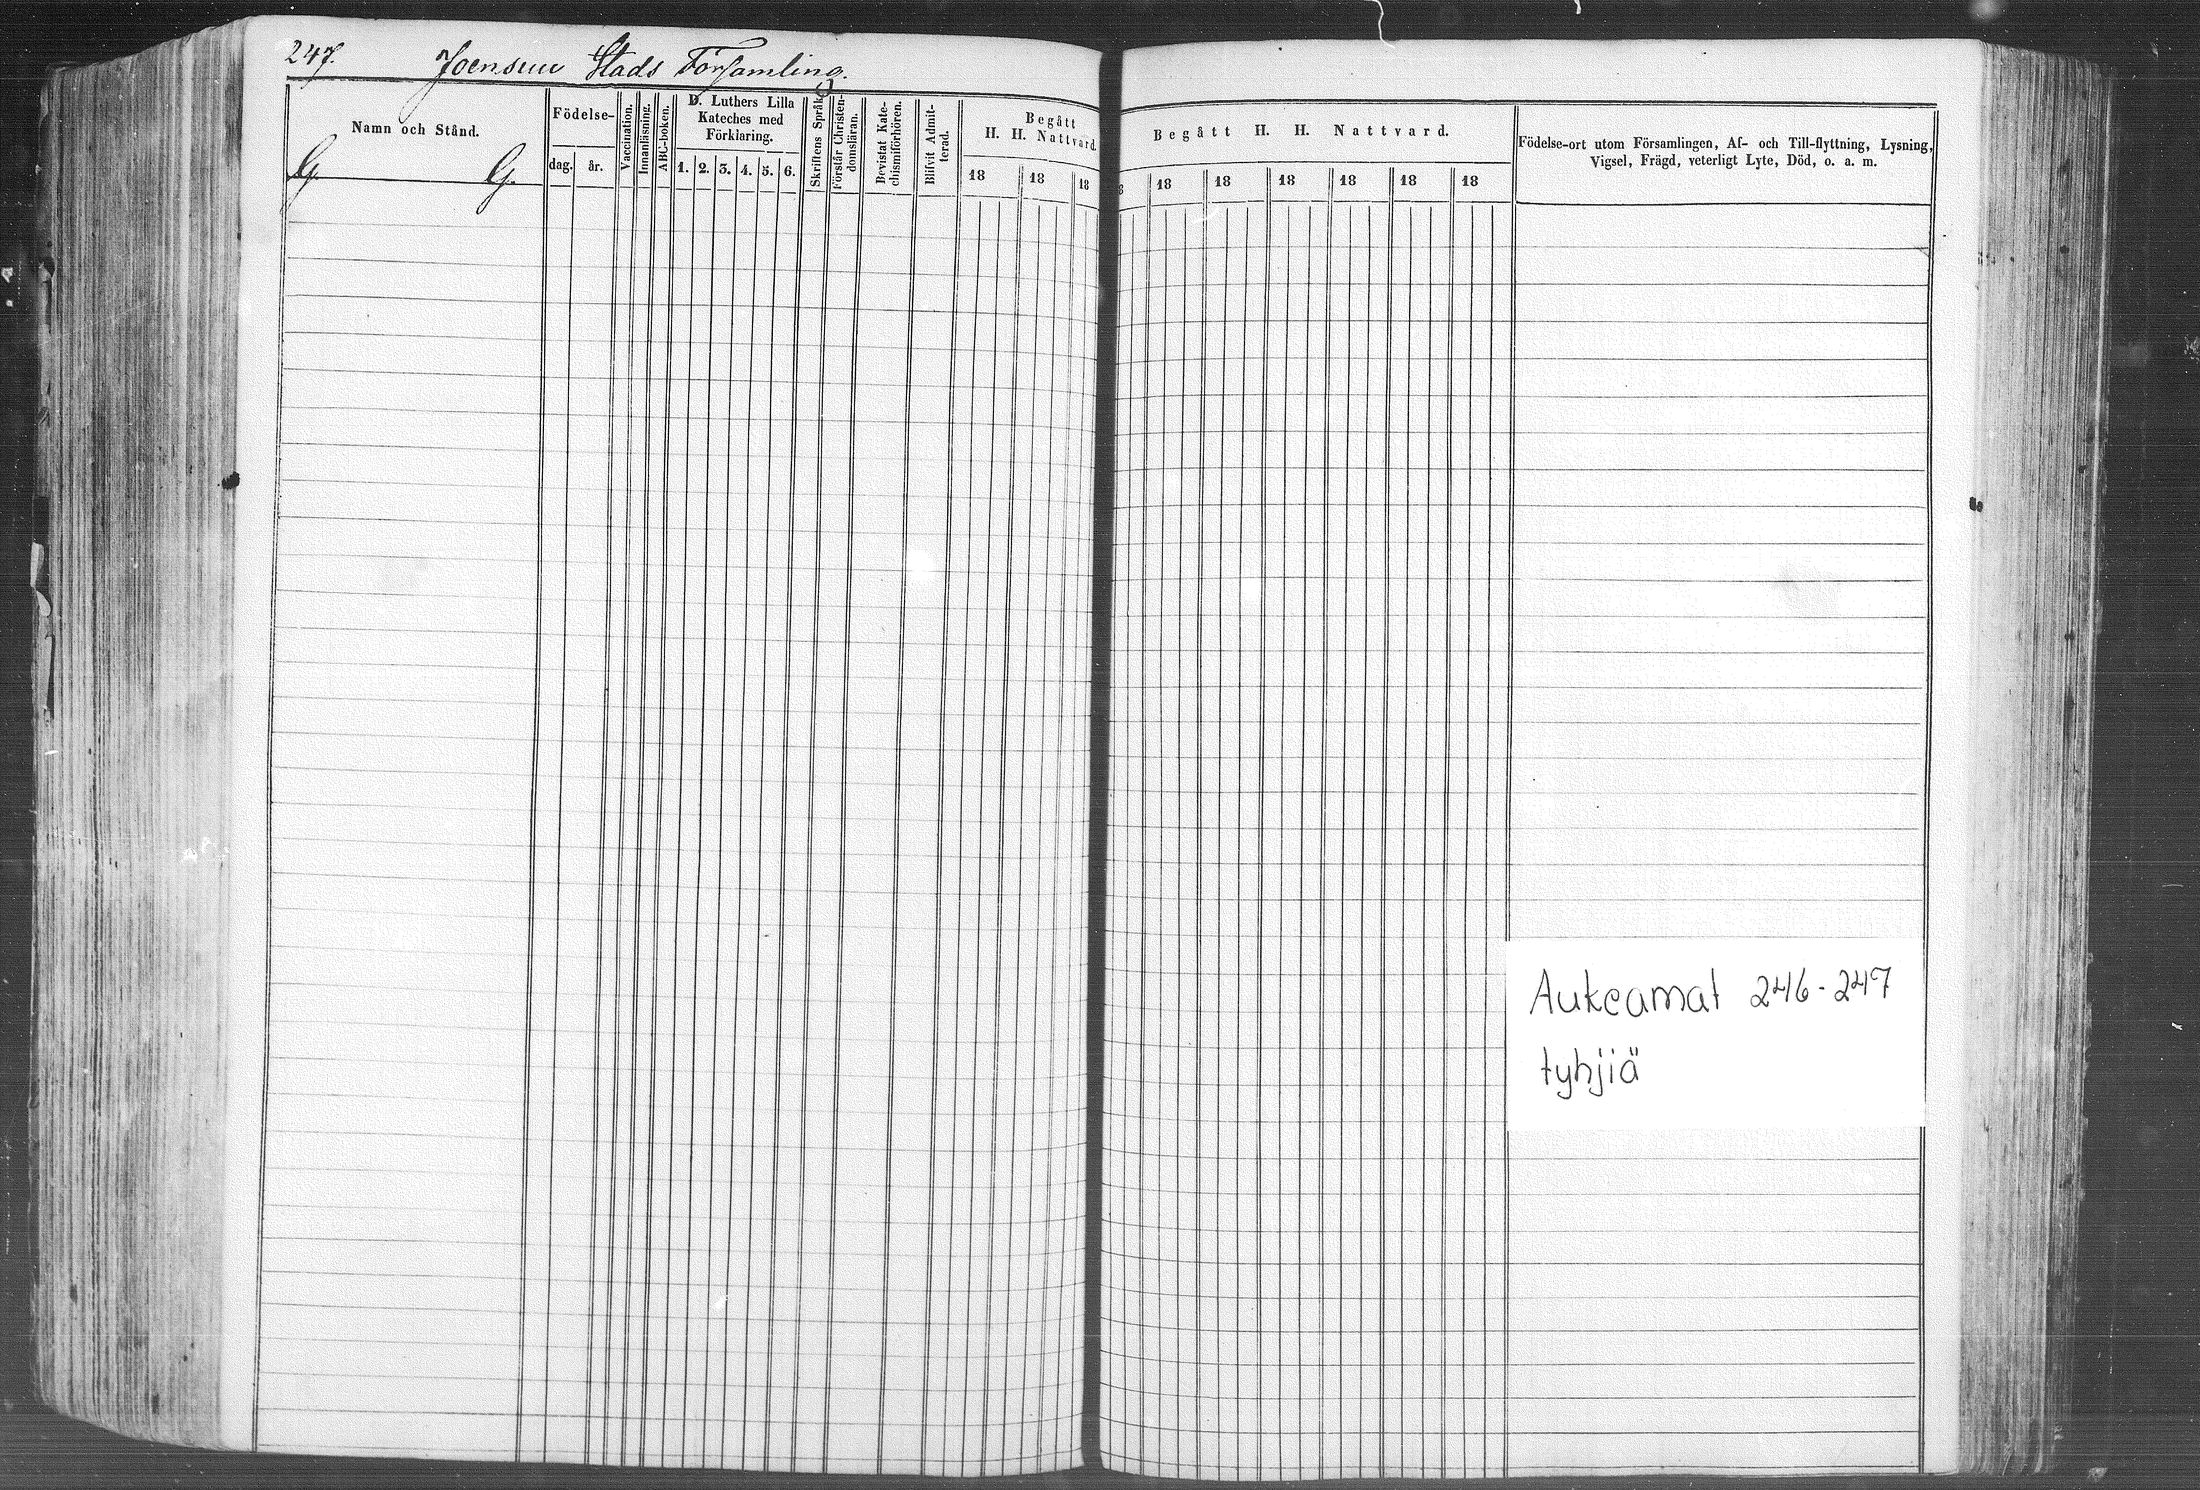 247. Joensuu Stads Församling.
Namn och Stånd.
G. G.
Födelse-
dag. år.
Vaccination.
Innanläsning.
ABC-boken.
D. Luthers Lilla
Kateches med
Förklaring.
1. 2. 3. 4. 5. 6.
Skriftens Språk.
Förstår Christen-
domsläran.
Bevistat Kate-
chismiförhören.
Blifvit Admit-
terad.
Begått
H. H. Nattvard.
18 18 18
Begått H. H. Nattvard.
8 18 18 18 18 18 18
Födelse-ort utom Församlingen, Af- och Till-flyttning, Lysning,
Vigsel, Frägd, veterligt Lyte, Död, o. a. m.
Aukeamat 246-247
tyhjiä